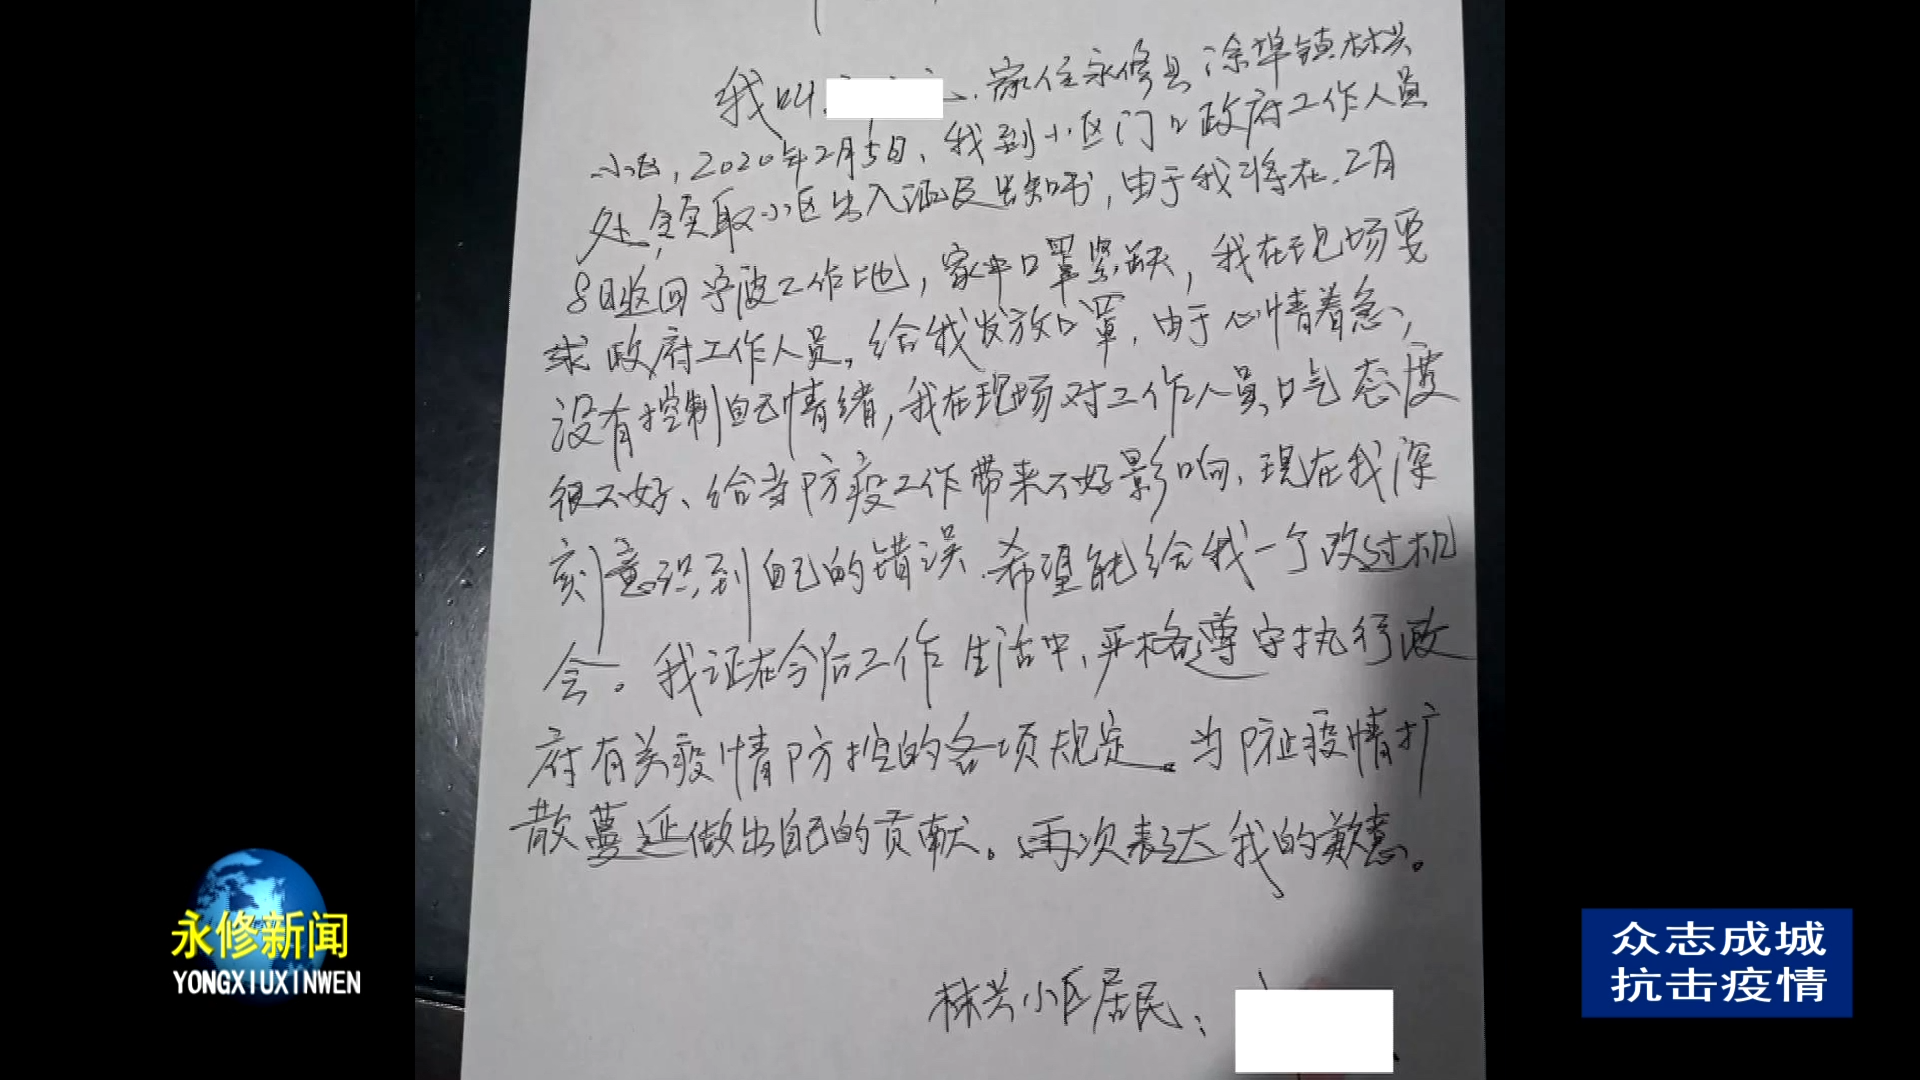 我叫 家住永修县涂埠镇林兴
小区，2020年2月5日，我到小区门口政府工作人员
处，领取小区出入证及告知书，由于我将在2月
8日返回宁波工作地，家中口罩紧缺，我在现场要
求政府工作人员，给我发放口罩，由于心情着急，
没有控制自己情绪，我在现场对工作人员口气态度
很不好、给当防疫工作带来不好影响，现在我深
刻意识到自己的错误，希望能给我一个改过机
会。我证在今后工作生活中，严格遵守执行政
府有关疫情防控的各项规定。为防止疫情扩
散蔓延做出自己的贡献。再次表达我的歉意。
林兴小区居民：
永修新闻
YONGXIUXINWEN
众志成城
抗击疫情